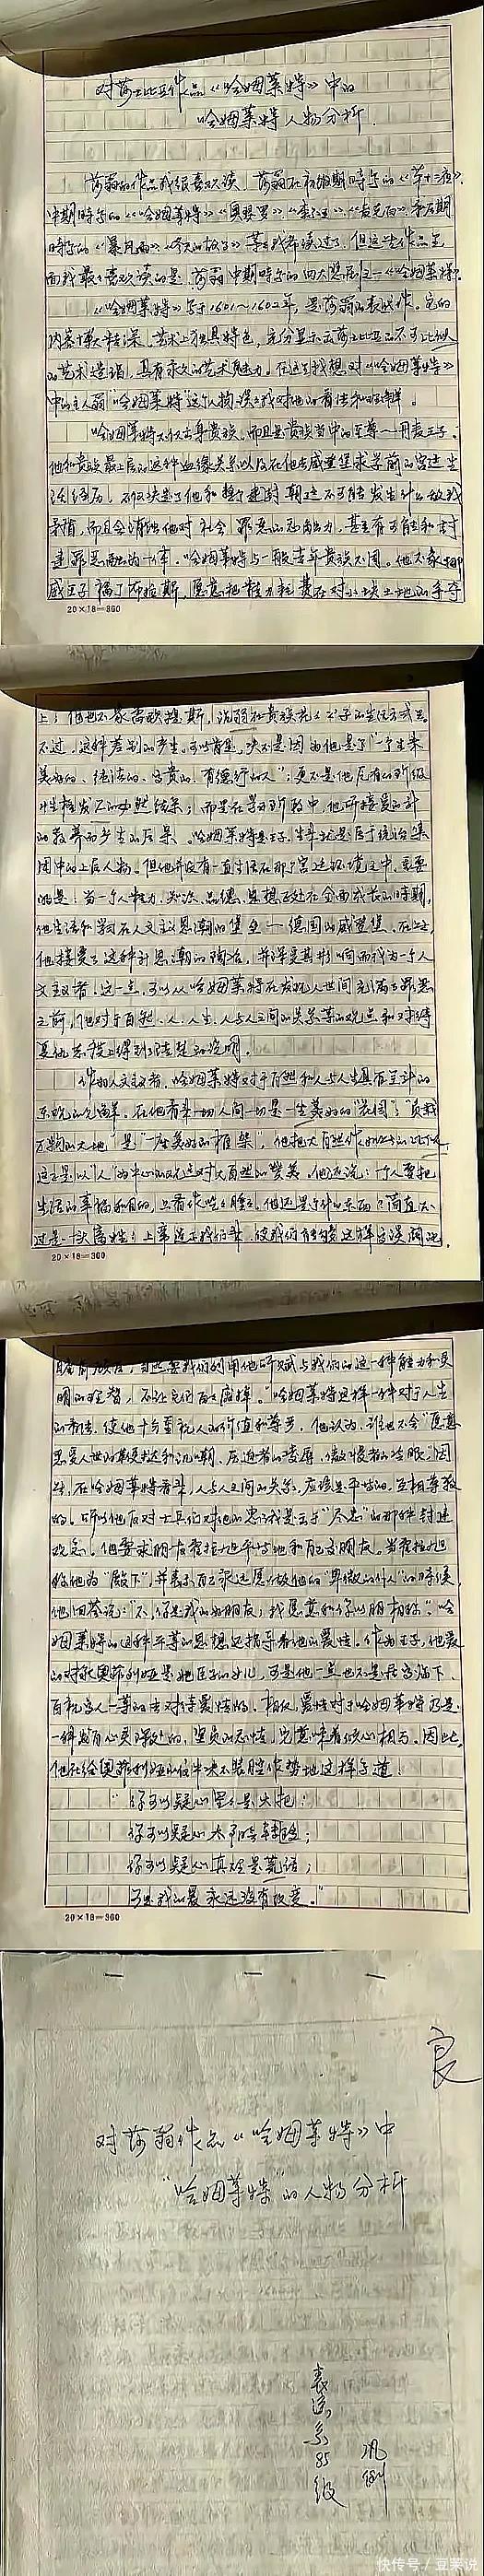 对莎士比亚作品《哈姆莱特》中的
哈姆莱特人物分析.
莎翁的作品我很喜欢读、莎翁在初期时写的《第十二夜》
中期时写的《哈姆莱特》《奥瑟罗》《李尔王》《麦克白》和后期
时写的《暴风雨》《冬天的故事》等我都读过了. 但这些作品里
面我最喜欢读的是莎翁中期时写的四大悲剧之一《哈姆莱特》
《哈姆莱特》写于1601～1602年, 是莎翁的代表作. 它的
内容十分精采、艺术上独具特色, 充分显示了莎士比亚的不可比拟
的艺术造诣, 具有永久的艺术魅力. 在这里我想对《哈姆莱特》
中的主人翁哈姆莱特这个人物谈谈我对他的看法和理解。
哈姆莱特不仅出身贵族、而且是贵族当中的至尊—丹麦王子.
他和贵族最上层的这种血缘关系以及在他去威登堡求学前的宫廷生
活经历, 不仅决定了他和封建时朝廷不可能发生什么敌我
矛盾, 而且会消蚀他对社会罪恶的
建罪恶融为一体. 哈姆莱特与一般青年贵族不同. 他不象挪
威王子福丁布拉斯, 愿意把精力耗费在对小块土地的争夺
20×18=360
上; 他也不象雷欧提斯, 沉溺在贵族花花公子的生活方式里.
不过, 这种差别的产生. 可以肯定, 决不是因为他是个"一个生来
美好的、纯洁的、高贵的、有德行的人"; 更不是他固有的阶级
性格发展的必然结果; 而是在学习阶段中, 他所接受的新
的教养而产生的后果. 哈姆莱特是王子, 生身就是属于统治集
团中的上层人物. 但他并没有一直生活在那个宫廷环境之中. 重要
的是: 当一个人精力、知识、品德、思想正处在全面成长的时期,
他生活和学习在人文主义思潮的堡垒—德国的威登堡. 在这里,
他接受了这种新思潮的陶冶, 并深受其影响而成为一个人
文主义者. 这一点, 可以从哈姆莱特在发现人世间充满了罪恶
之前, 他对于自然、人、人生、人与人之间的关系等的观点和对待
复仇态度上得到清楚的说明.
作为人文主义者. 哈姆莱特对于自然和人与人生具有全新的
系统的见解. 在他看来一切人间一切是一座美好的"花园";"负载
万物的大地"是"一座美好的框架",
这正是以"人"为中心的观点对大自然的赞美. 他还说: 一个人要把
生活的幸福和目的, 只看作吃吃睡睡, 他还算个什么东西? 简直不
过是一头畜牲! 上帝造下我们来, 使我们能够这样高谈阔论,
20×18=360
瞻前顾后, 当然要我们利用他所赋与我们的这一种能力和灵
明的理智, 不让它们白白废掉。"哈姆莱特这样一种对于人生
的看法, 使他十分重视人的价值和尊严. 他认为, 谁也不会"愿意
忍受人世的鞭挞和讥嘲、压迫者的凌辱、傲慢者的冷眼,"因
此, 在哈姆莱特看来, 人与人之间的关系, 应该是平等的, 互相尊敬
的. 所以他反对士兵们对他的忠诚是出于"尽忠"的那种封建
观念. 他要求朋友霍拉旭平等地和自己交朋友. 当霍拉旭
称他为"殿下", 并表示自己永远愿做他的"卑微的仆人"的时候,
他回答说:"不, 你是我的好朋友; 我愿意和你以朋友相称". 哈
姆莱特的这种平等的思想还指导着他的爱情. 作为王子, 他爱
的对象奥菲利娅是他臣子的女儿, 可是他一点也不是居高临下、
自视高人一等的去对待爱情的. 相反, 爱情对于哈姆莱特乃是
一种发自心灵深处的、坚贞的感情, 它意味着倾心相与. 因此,
他在给奥菲利娅的信中决不装腔作势地这样写道:
"你可以疑心星星是火把;
你可以疑心太阳会移转;
你可以疑心真理是谎话;
可是我的爱永远没有改变."
20×18=360
良
对莎翁作品《哈姆莱特》中
"哈姆莱特"的人物分析
表演系85级
巩俐
快传号/豆荚说